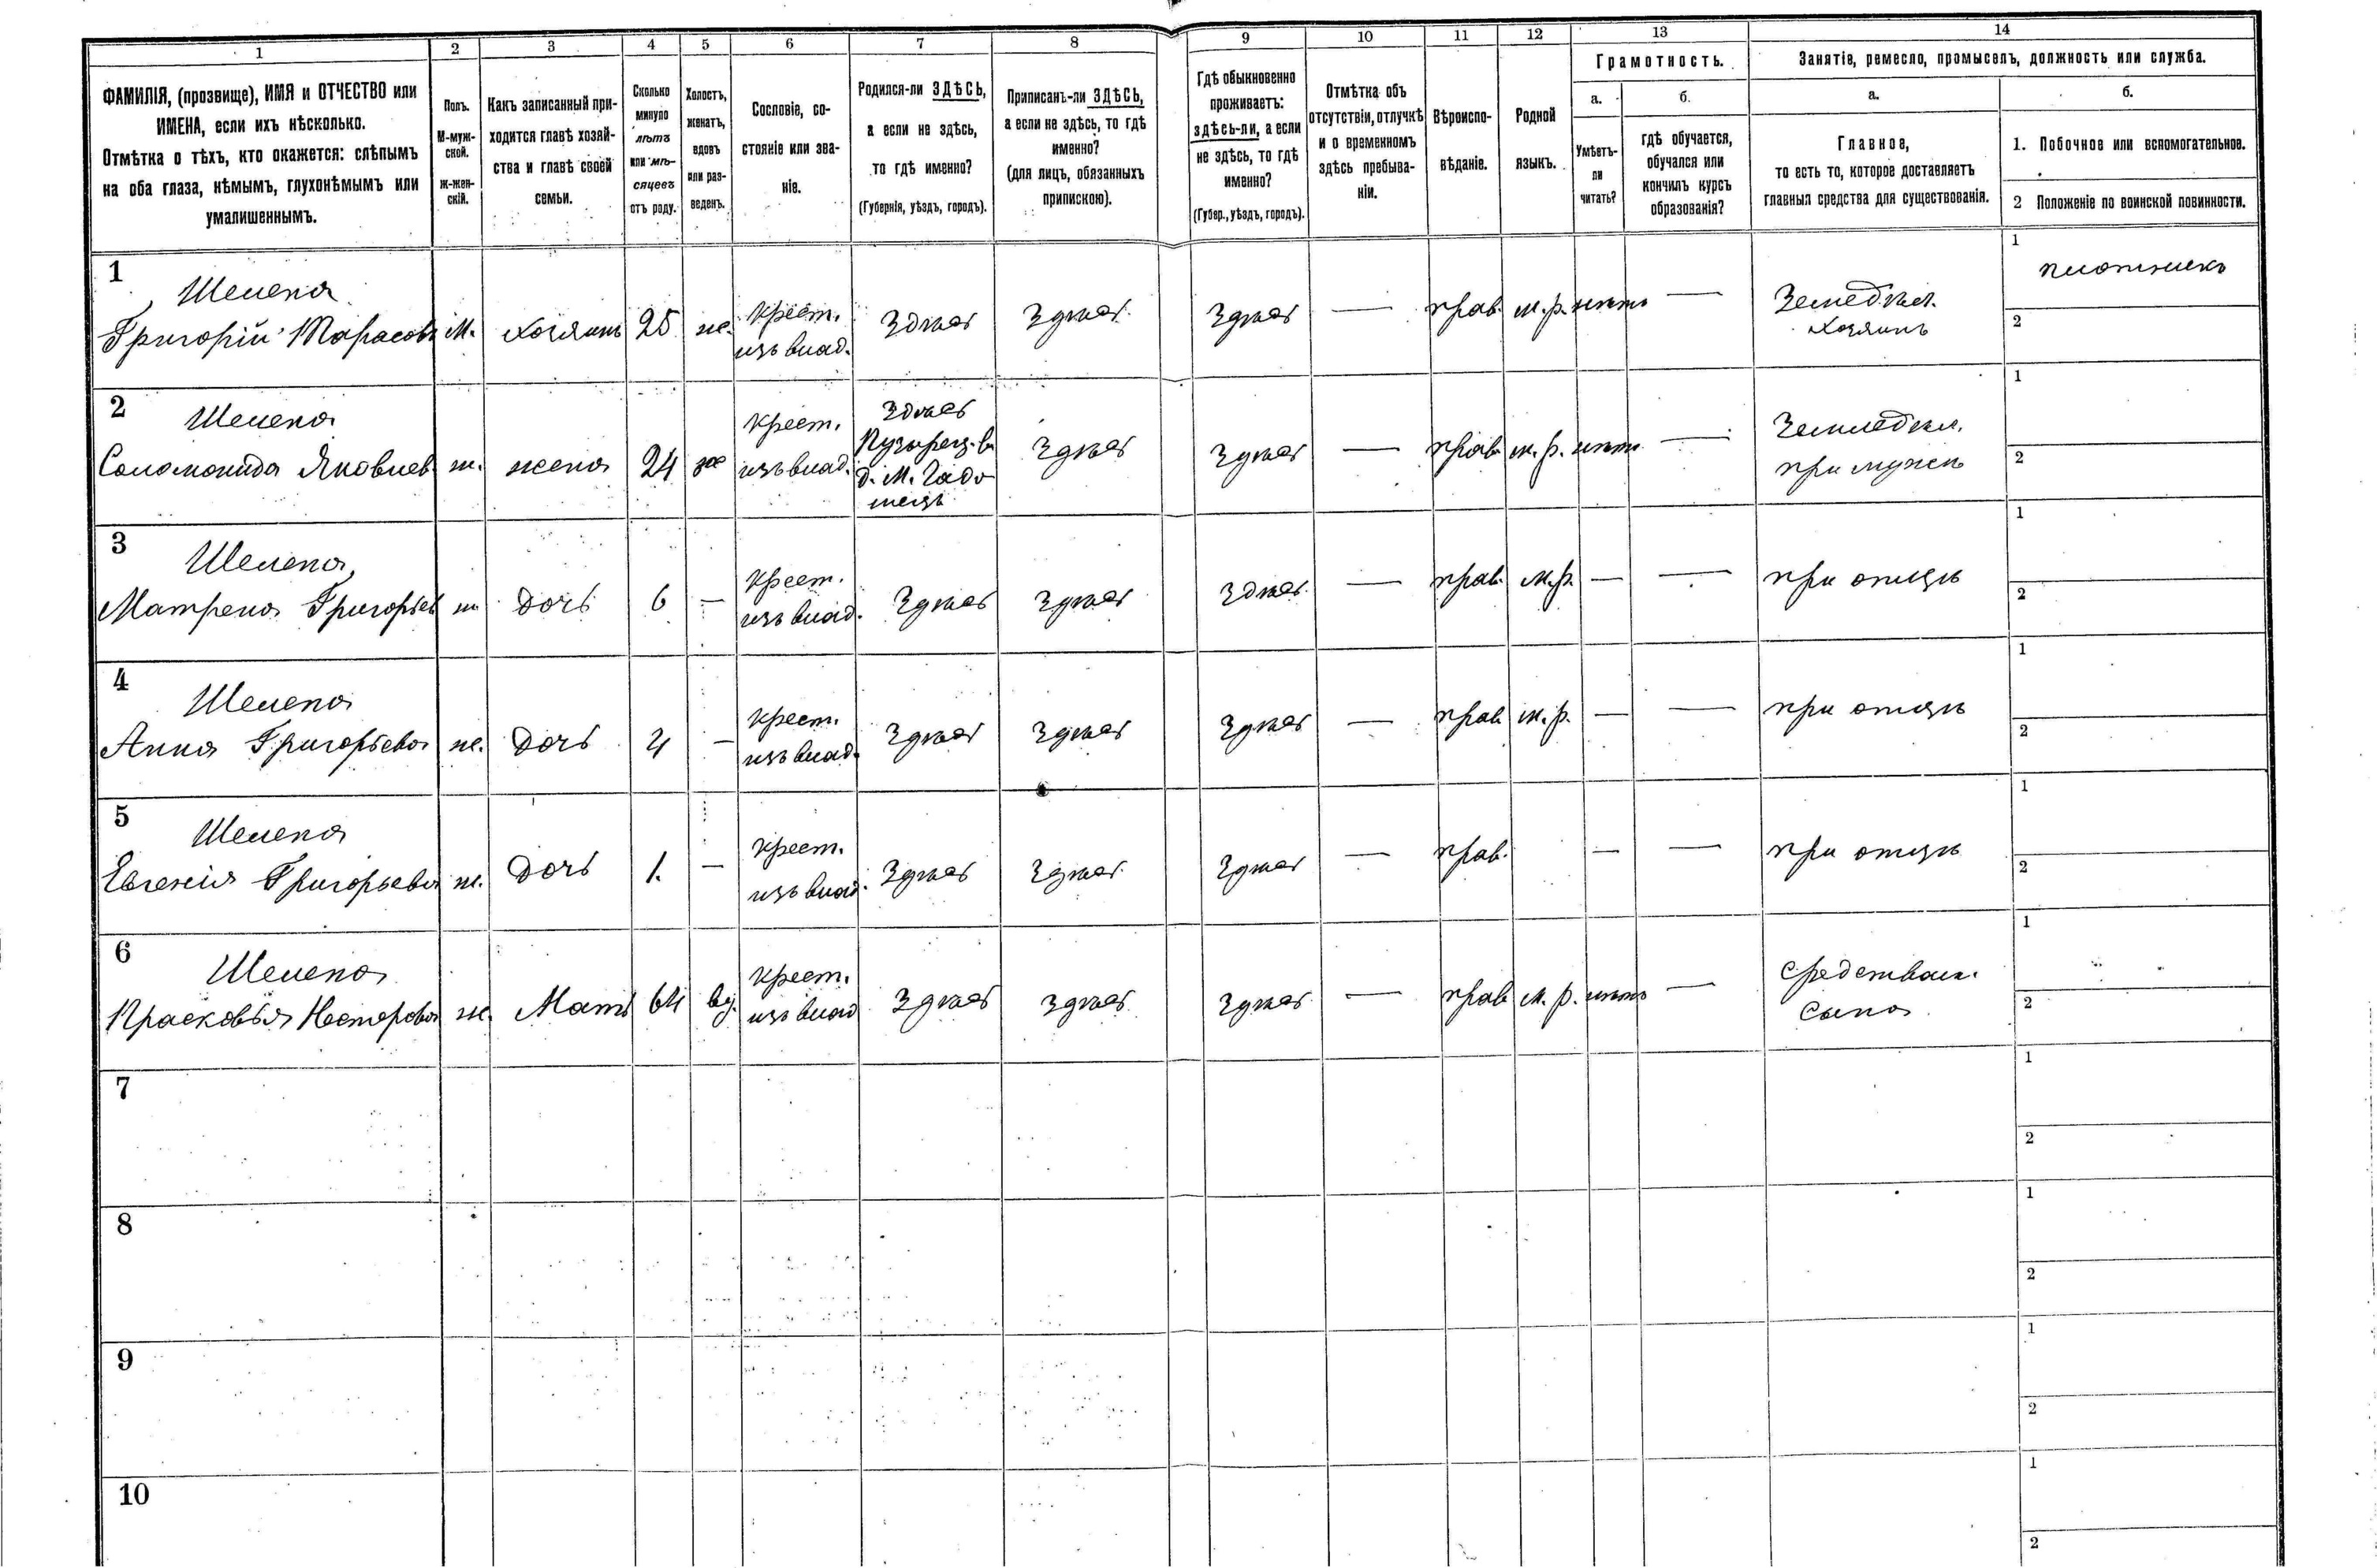 1
2
3
4
5
6
7
8
9
10
11
12
13
14
ФАМИЛІЯ, (прозвище), ИМЯ и ОТЧЕСТВО или
ИМЕНА, если ихъ нѣсколько.
Отмѣтка о тѣхъ, кто окажется: слѣпымъ
на оба глаза, нѣмымъ, глухонѣмымъ или
умалишеннымъ.
Полъ.
М-муж-
ской.
ж-жен-
скій.
Какъ записанный при-
ходится главѣ хозяй-
ства и главѣ своей
семьи.
Сколько
минуло
лѣтъ
или мѣ-
сяцевъ
отъ роду.
Холостъ,
женатъ,
вдовъ
или раз-
веденъ.
Сословіе, со-
стояніе или зва-
ніе.
Родился-ли ЗДѢСЬ,
а если не здѣсь,
то гдѣ именно?
(Губернія, уѣздъ, городъ).
Приписанъ-ли ЗДѢСЬ,
а если не здѣсь, то гдѣ
именно?
(для лицъ, обязанныхъ
припискою).
Гдѣ обыкновенно
проживаетъ:
здѣсь-ли, а если
не здѣсь, то гдѣ
именно?
(Губер., уѣздъ, городъ).
Отмѣтка объ
отсутствіи, отлучкѣ
и о временномъ
здѣсь пребыва-
ніи.
Вѣроиспо-
вѣданіе.
Родной
языкъ.
Грамотность.
а.
Умѣетъ-
ли
читать?
б.
гдѣ обучается,
обучался или
кончилъ курсъ
образованія?
Занятіе, ремесло, промыселъ, должность или служба.
а.
Главное,
то есть то, которое доставляетъ
главныя средства для существованія.
б.
1. Побочное или вспомогательное.
2 Положеніе по воинской повинности.
1
Шелепа
Григорій Тарасовъ
М.
хозяинъ
25
же.
крест.
изъ влад.
Здѣсь
Здѣсь
Здѣсь
—
прав.
м.р.
нѣтъ
—
Земледѣл.
хозяинъ
1
плотникъ
2
2
Шелепа
Соломонида Яковлев
ж.
жена
24
же
крест.
изъ влад.
Здѣсь
д. М.
Здѣсь
Здѣсь
—
прав.
м.р.
нѣтъ
—
Земледѣл.
при мужѣ
1
2
3
Шелепа
Матрена Григорьев
ж
дочь
6
—
крест.
изъ влад.
Здѣсь
Здѣсь
Здѣсь
—
прав.
м.р.
—
—
при отцѣ
1
2
4
Шелепа
Анна Григорьева
же.
дочь
4
—
крест.
изъ влад.
Здѣсь
Здѣсь
Здѣсь
—
прав
м.р.
—
—
при отцѣ
1
2
5
Шелепа
Евгенія Григорьева
же.
дочь
1.
—
крест.
изъ влад.
Здѣсь
Здѣсь
Здѣсь
—
прав.
—
—
при отцѣ
1
2
6
Шелепа
Прасковья Несторова
же.
Мать
64
вд.
крест.
изъ влад
Здѣсь
Здѣсь
Здѣсь
—
прав
м.р.
нѣтъ
—
средствам.
сына
1
2
7
1
2
8
1
2
9
1
2
10
1
2